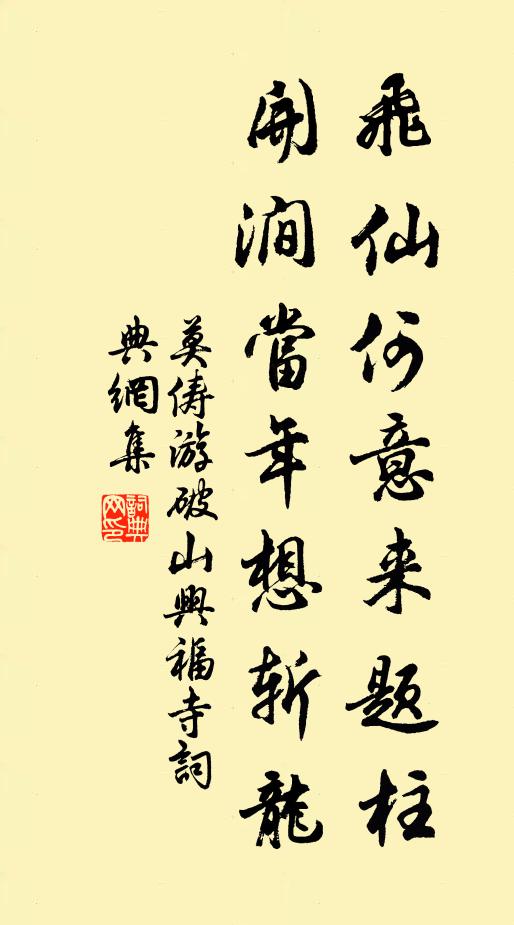 飛仙何意来題柱
開澗當年想斬龍
莫儔游破山興福寺詞
典網集
詞典
网印